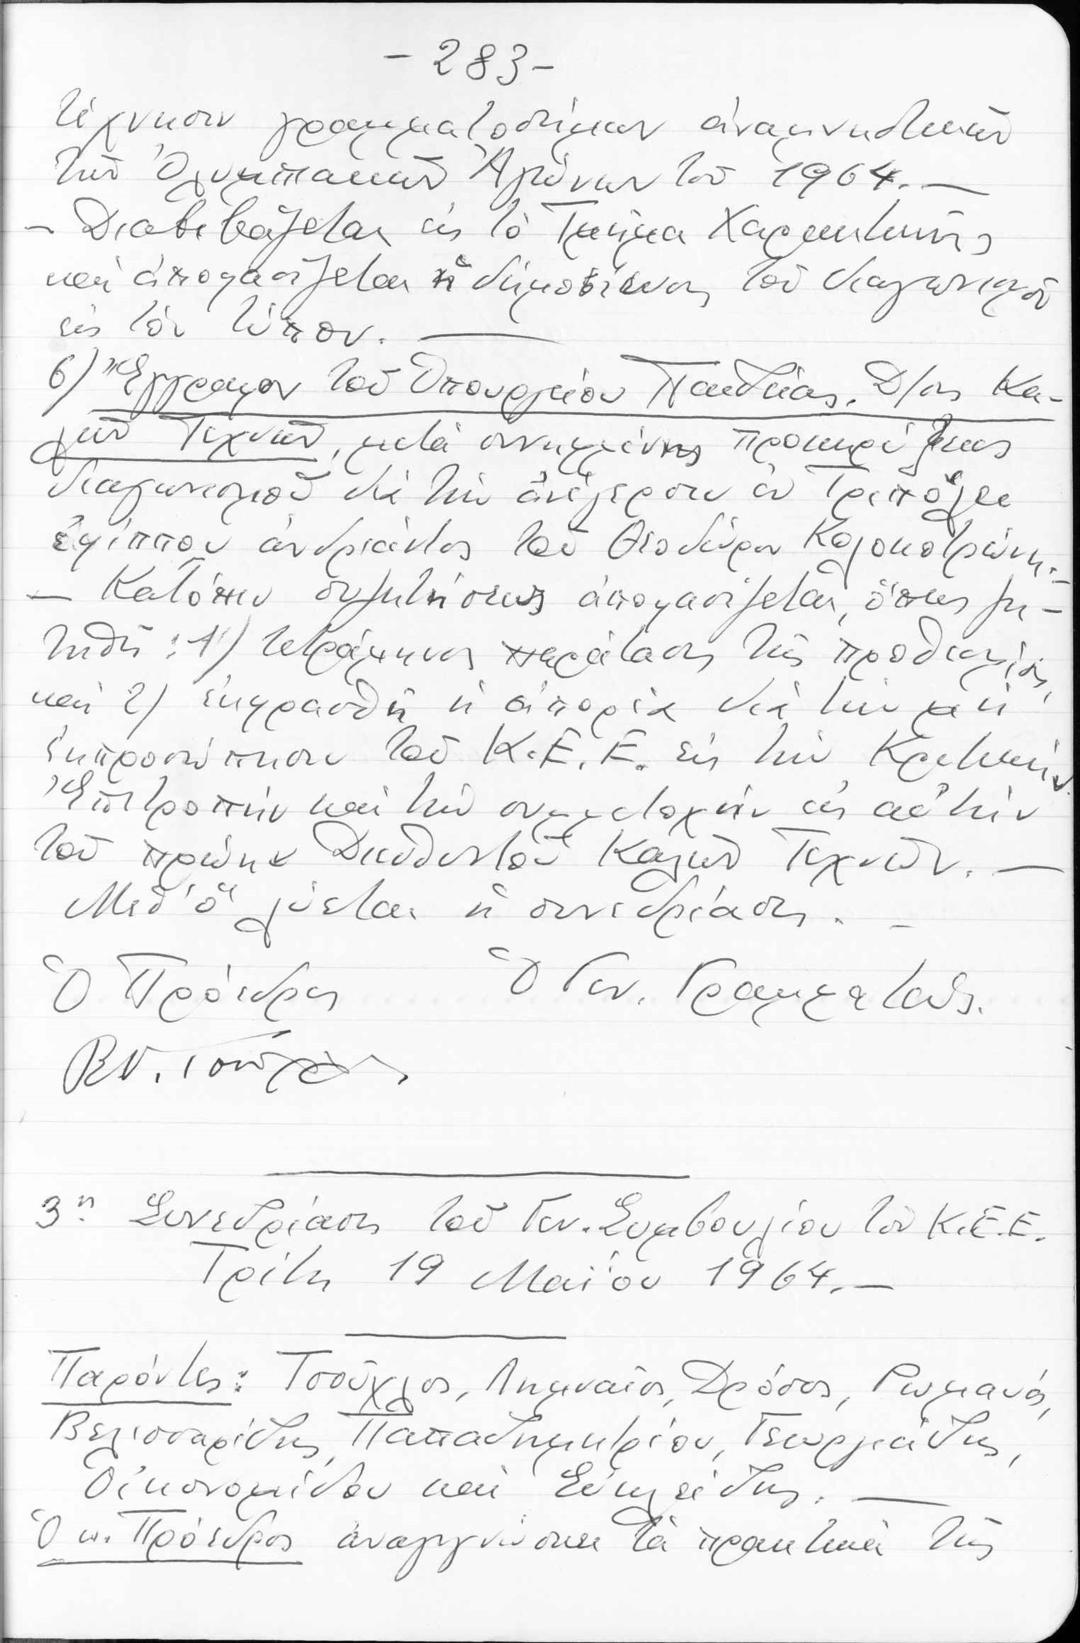 - 283 -
τέχνησιν γραμματοσήμων ἀναμνηστικῶν
τῶν Ὀλυμπιακῶν Ἀγώνων τοῦ 1964. —
- Διαβιβάζεται εἰς τὸ Τμῆμα Χαρακτικῆς
καὶ ἀποφασίζεται ἡ δημοσίευσις τοῦ διαγωνισμοῦ
εἰς τὸν τύπον. —
6) Ἔγγραφον τοῦ Ὑπουργείου Παιδείας. Δ/σις Κα-
λῶν Τεχνῶν, μετὰ συνημμένης προκηρύξεως
διαγωνισμοῦ διὰ τὴν ἀνέγερσιν ἐν Τριπόλει
ἐφίππου ἀνδριάντος τοῦ Θεοδώρου Κολοκοτρώνη. -
— Κατόπιν συζητήσεως ἀποφασίζεται, ὅπως ζη-
τηθῇ: 1) τετράμηνος παράτασις τῆς προθεσμίας,
καὶ 2) ἐκφρασθῇ ἡ ἀπορία διὰ τὴν μὴ
ἐκπροσώπησιν τοῦ Κ.Ε.Ε. εἰς τὴν Κριτικὴν
Ἐπιτροπὴν καὶ τὴν συμμετοχὴν εἰς αὐτὴν
τοῦ πρώην Διευθυντοῦ Καλῶν Τεχνῶν. —
Μεθ' ὃ λύεται ἡ συνεδρίασις. -
Ὁ Πρόεδρος Ὁ Γεν. Γραμματεύς.
3η Συνεδρίασις τοῦ Γεν. Συμβουλίου τοῦ Κ.Ε.Ε.
Τρίτη 19 Μαΐου 1964. —
Παρόντες: Τσοῦχλος, Λημναῖος, Δρόσος, Ρωμανός,
Βελισσαρίδης, Παπαδημητρίου, Γεωργιάδης,
Οἰκονομίδου καὶ Εὐκλείδης. —
Ὁ κ. Πρόεδρος ἀναγιγνώσκει τὰ πρακτικὰ τῆς